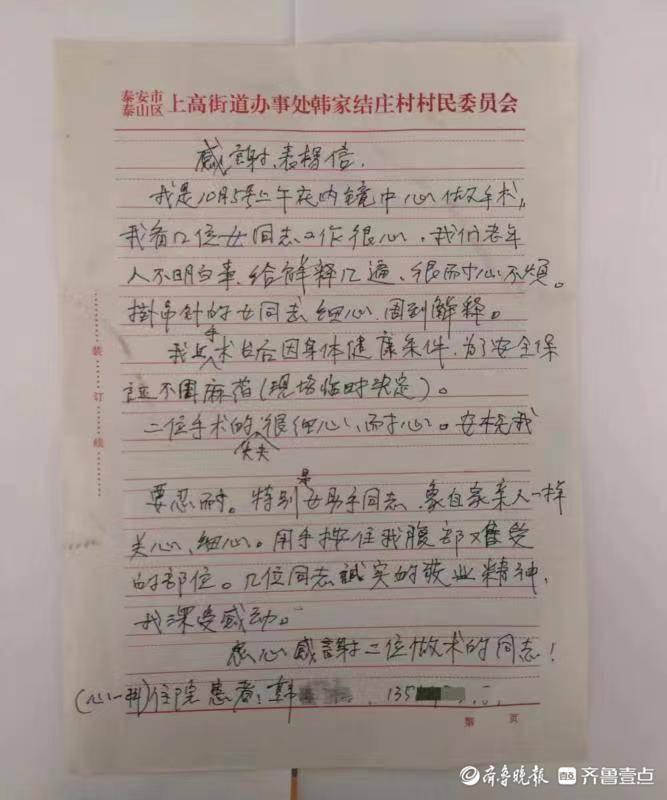 泰安市
泰山区 上高街道办事处韩家结庄村村民委员会
感謝表揚信.
我是10月5号上午在内镜中心做手术,
我看几位女同志工作很心,我们老年
人不明白事,给解释几遍、很耐心不烦。
掛吊针的女同志细心、周到解释。
我上手术台后因身体健康条件,为了安全保
证不用麻药(现场临时决定)。
二位手术的大夫很细心、耐心。安抚我
要忍耐。特别是女助手同志,象自家亲人一样
关心、细心。用手按住我腹部难受
的部位。几位同志誠实的敬业精神,
我深受感动。
衷心感謝二位做术的同志!
(心一科)住院患者:韩 135
第 页
装
订
线
齐鲁晚报 齐鲁壹点